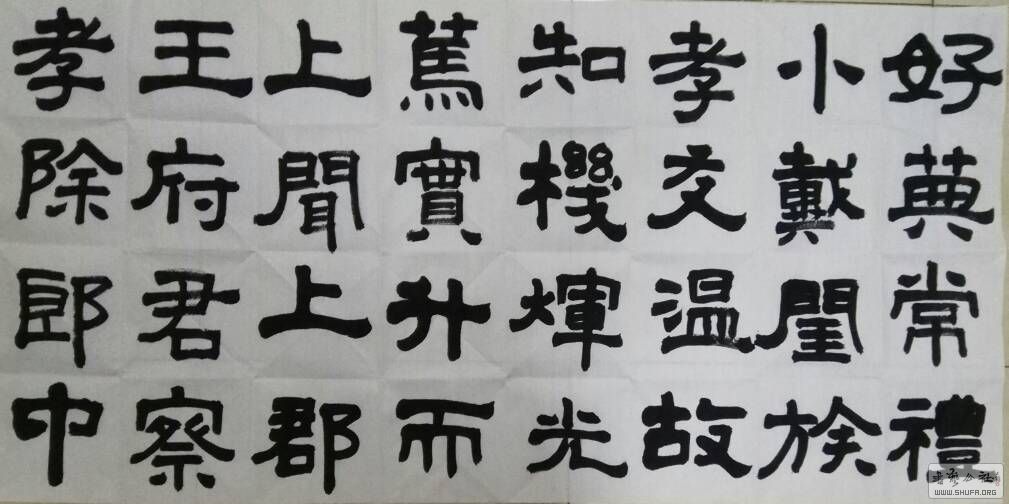 好典常禮
小戴閨族
孝交温故
知機煇光
篤實升而
上聞上郡
王府君察
孝除郎中
WWW.SHUFA.ORG